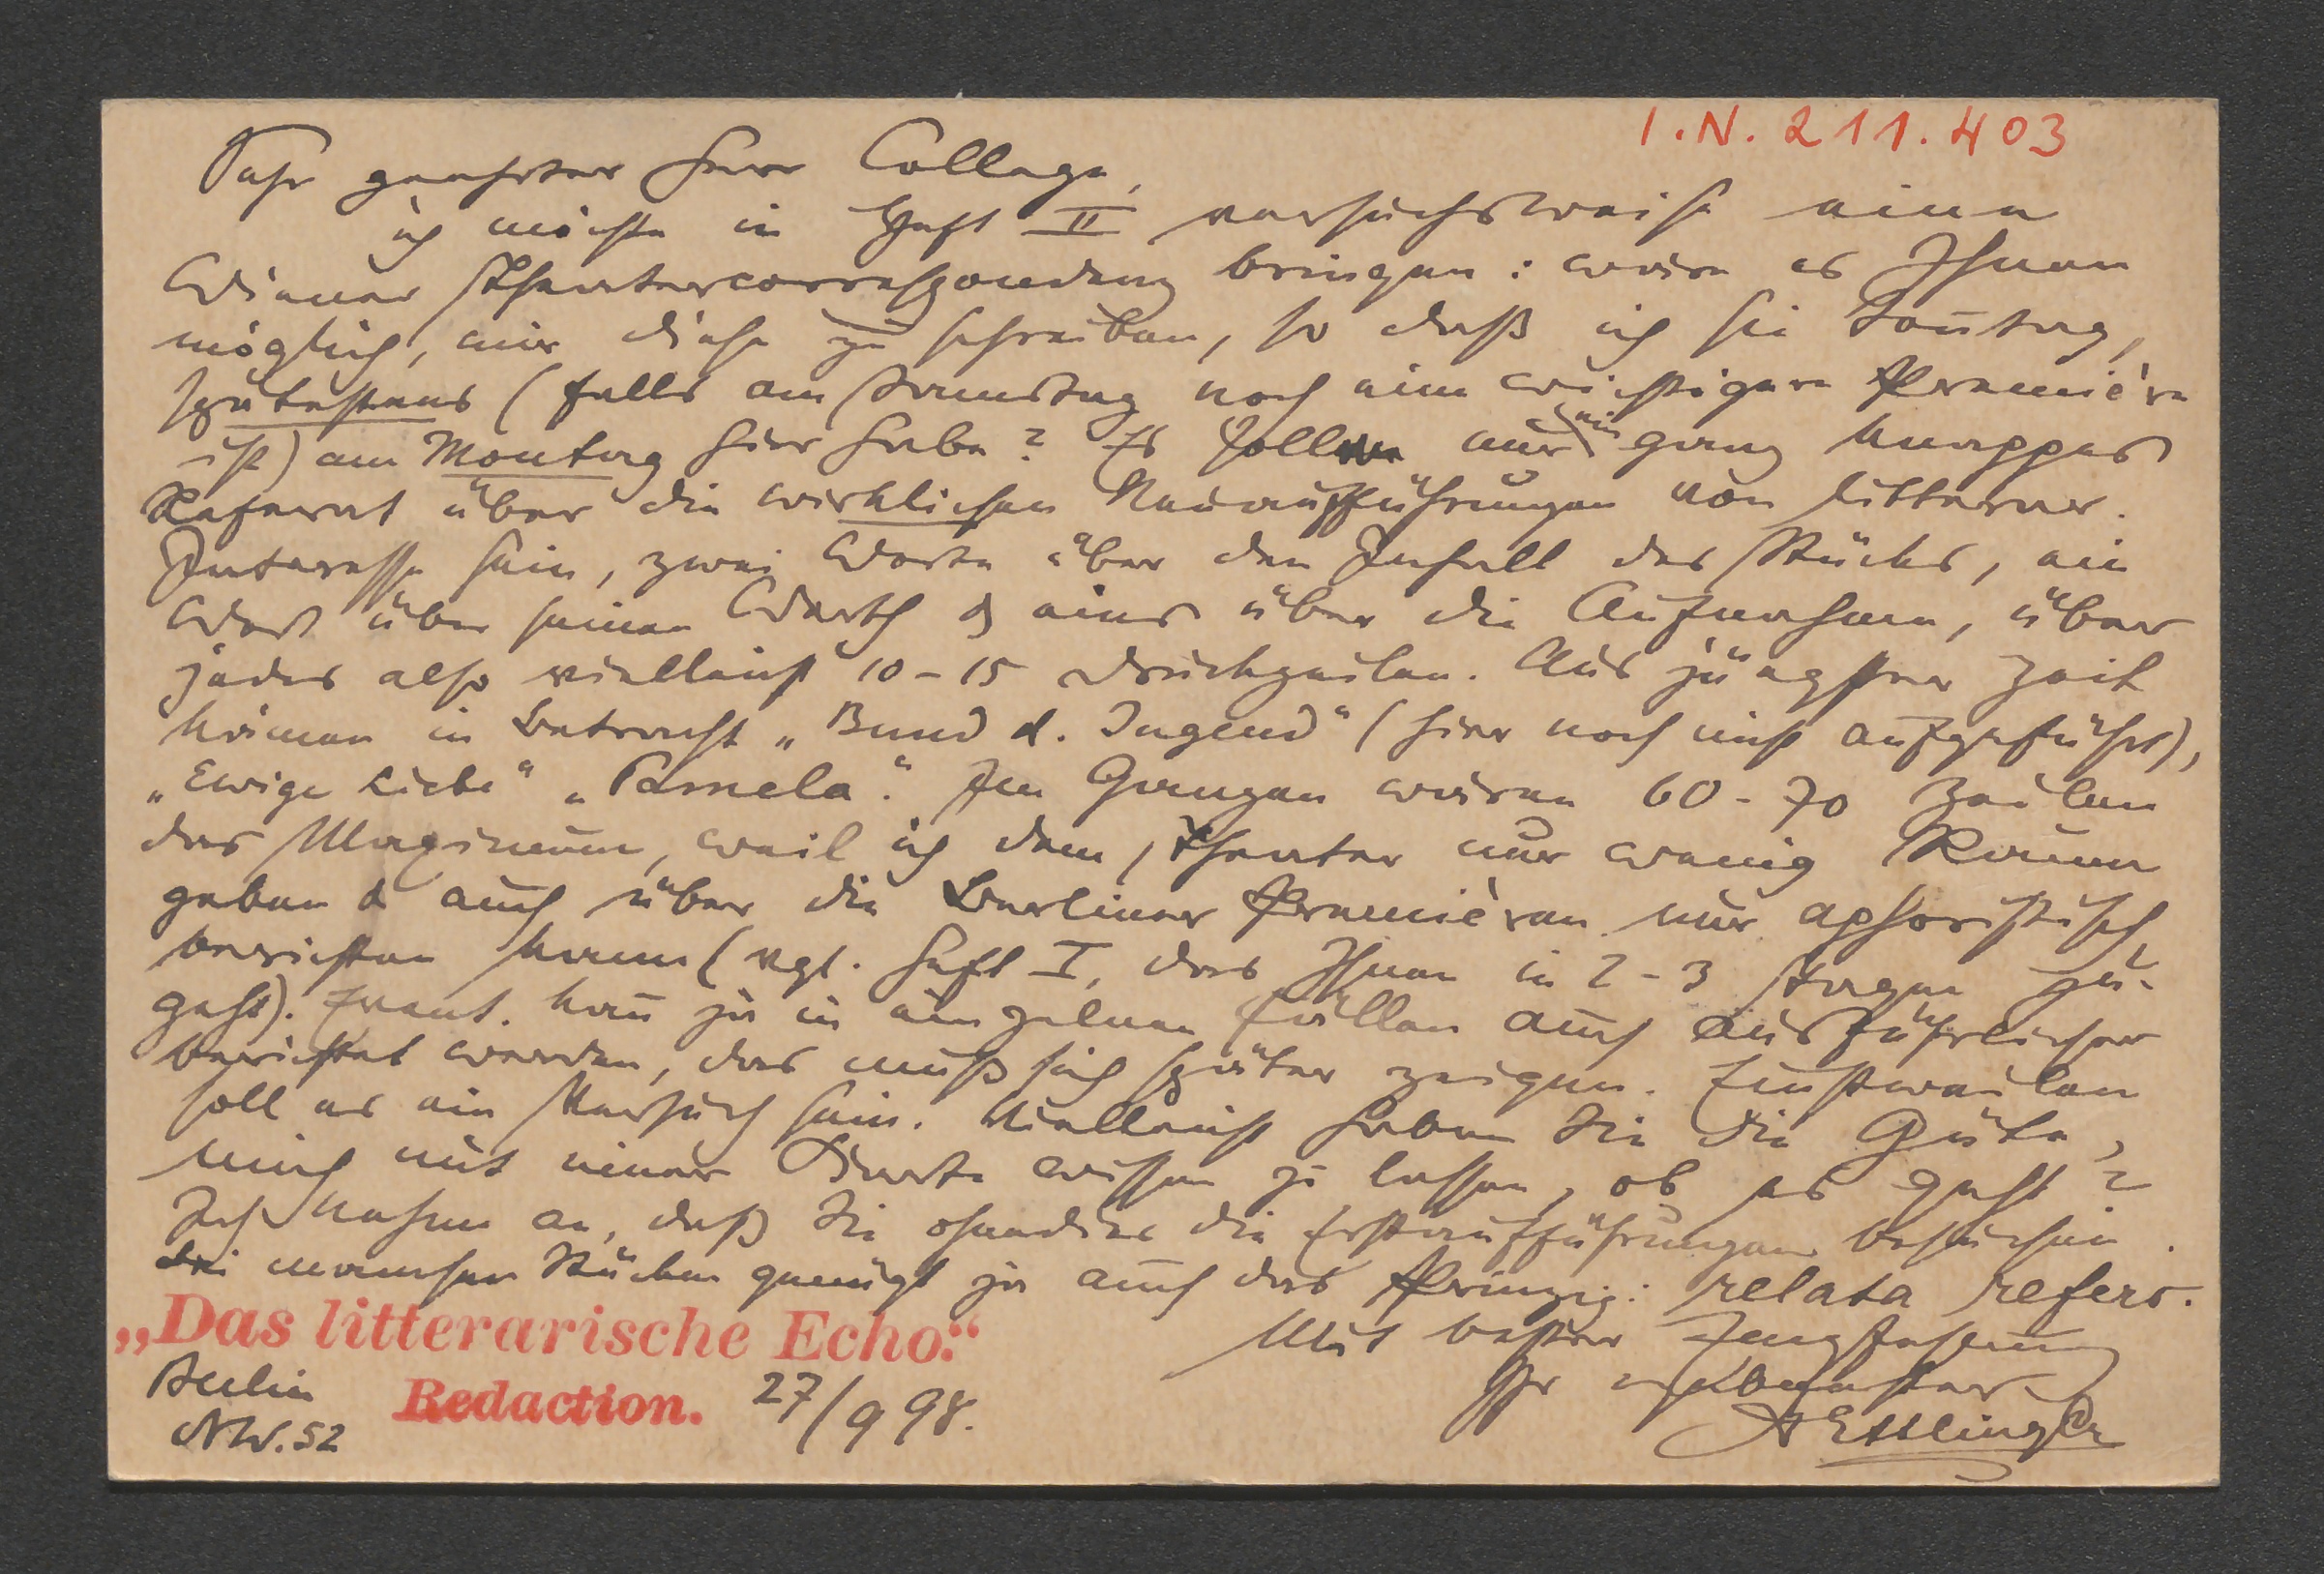 I.N. 211.403
Sehr geehrter Herr College,
ich möchte in Heft II versuchsweise eine
Wiener Theatercorrespondenz bringen: wäre es Ihnen
möglich, mir diese zu schreiben, so daß ich sie Sonntag,
spätestens (falls am Samstag noch eine wichtigere Première
ist) am Montag hier habe? Es soll nur ein ganz knappes
Referat über die wirklichen Neuaufführungen von litterar.
Interesse sein, zwei Worte über den Inhalt des Stücks, ein
Wort über seinen Werth & eines über die Aufnahme, über
jedes also vielleicht 10-15 Druckzeilen. Aus jüngster Zeit
kämen in Betracht „Bund d. Jugend“ (hier noch nicht aufgeführt),
„Ewige Liebe“ „Pamela“. Im Ganzen wären 60-70 Zeilen
das Maximum, weil ich dem Theater nur wenig Raum
geben & auch über die Berliner Premièren nur aphoristisch
berichten kann (vgl. Heft I, das Ihnen in 2-3 Tagen zu-
geht). Event. kann ja in einzelnen Fällen auch ausführlicher
berichtet werden, das muß sich später zeigen. Einstweilen
soll es ein Versuch sein. Vielleicht haben Sie die Güte,
mich mit einer Karte wissen zu lassen, ob es geht?
Ich nehme an, daß Sie ohnedies die Erstaufführungen besuchen.
Bei manchen Stücken genügt ja auch das Prinzip: relata refero.
Mit bester Empfehlung
Ihr ergebenster
AEttlinger
„Das litterarische Echo.“
Redaction.
Berlin
NW. 52
27/9 98.